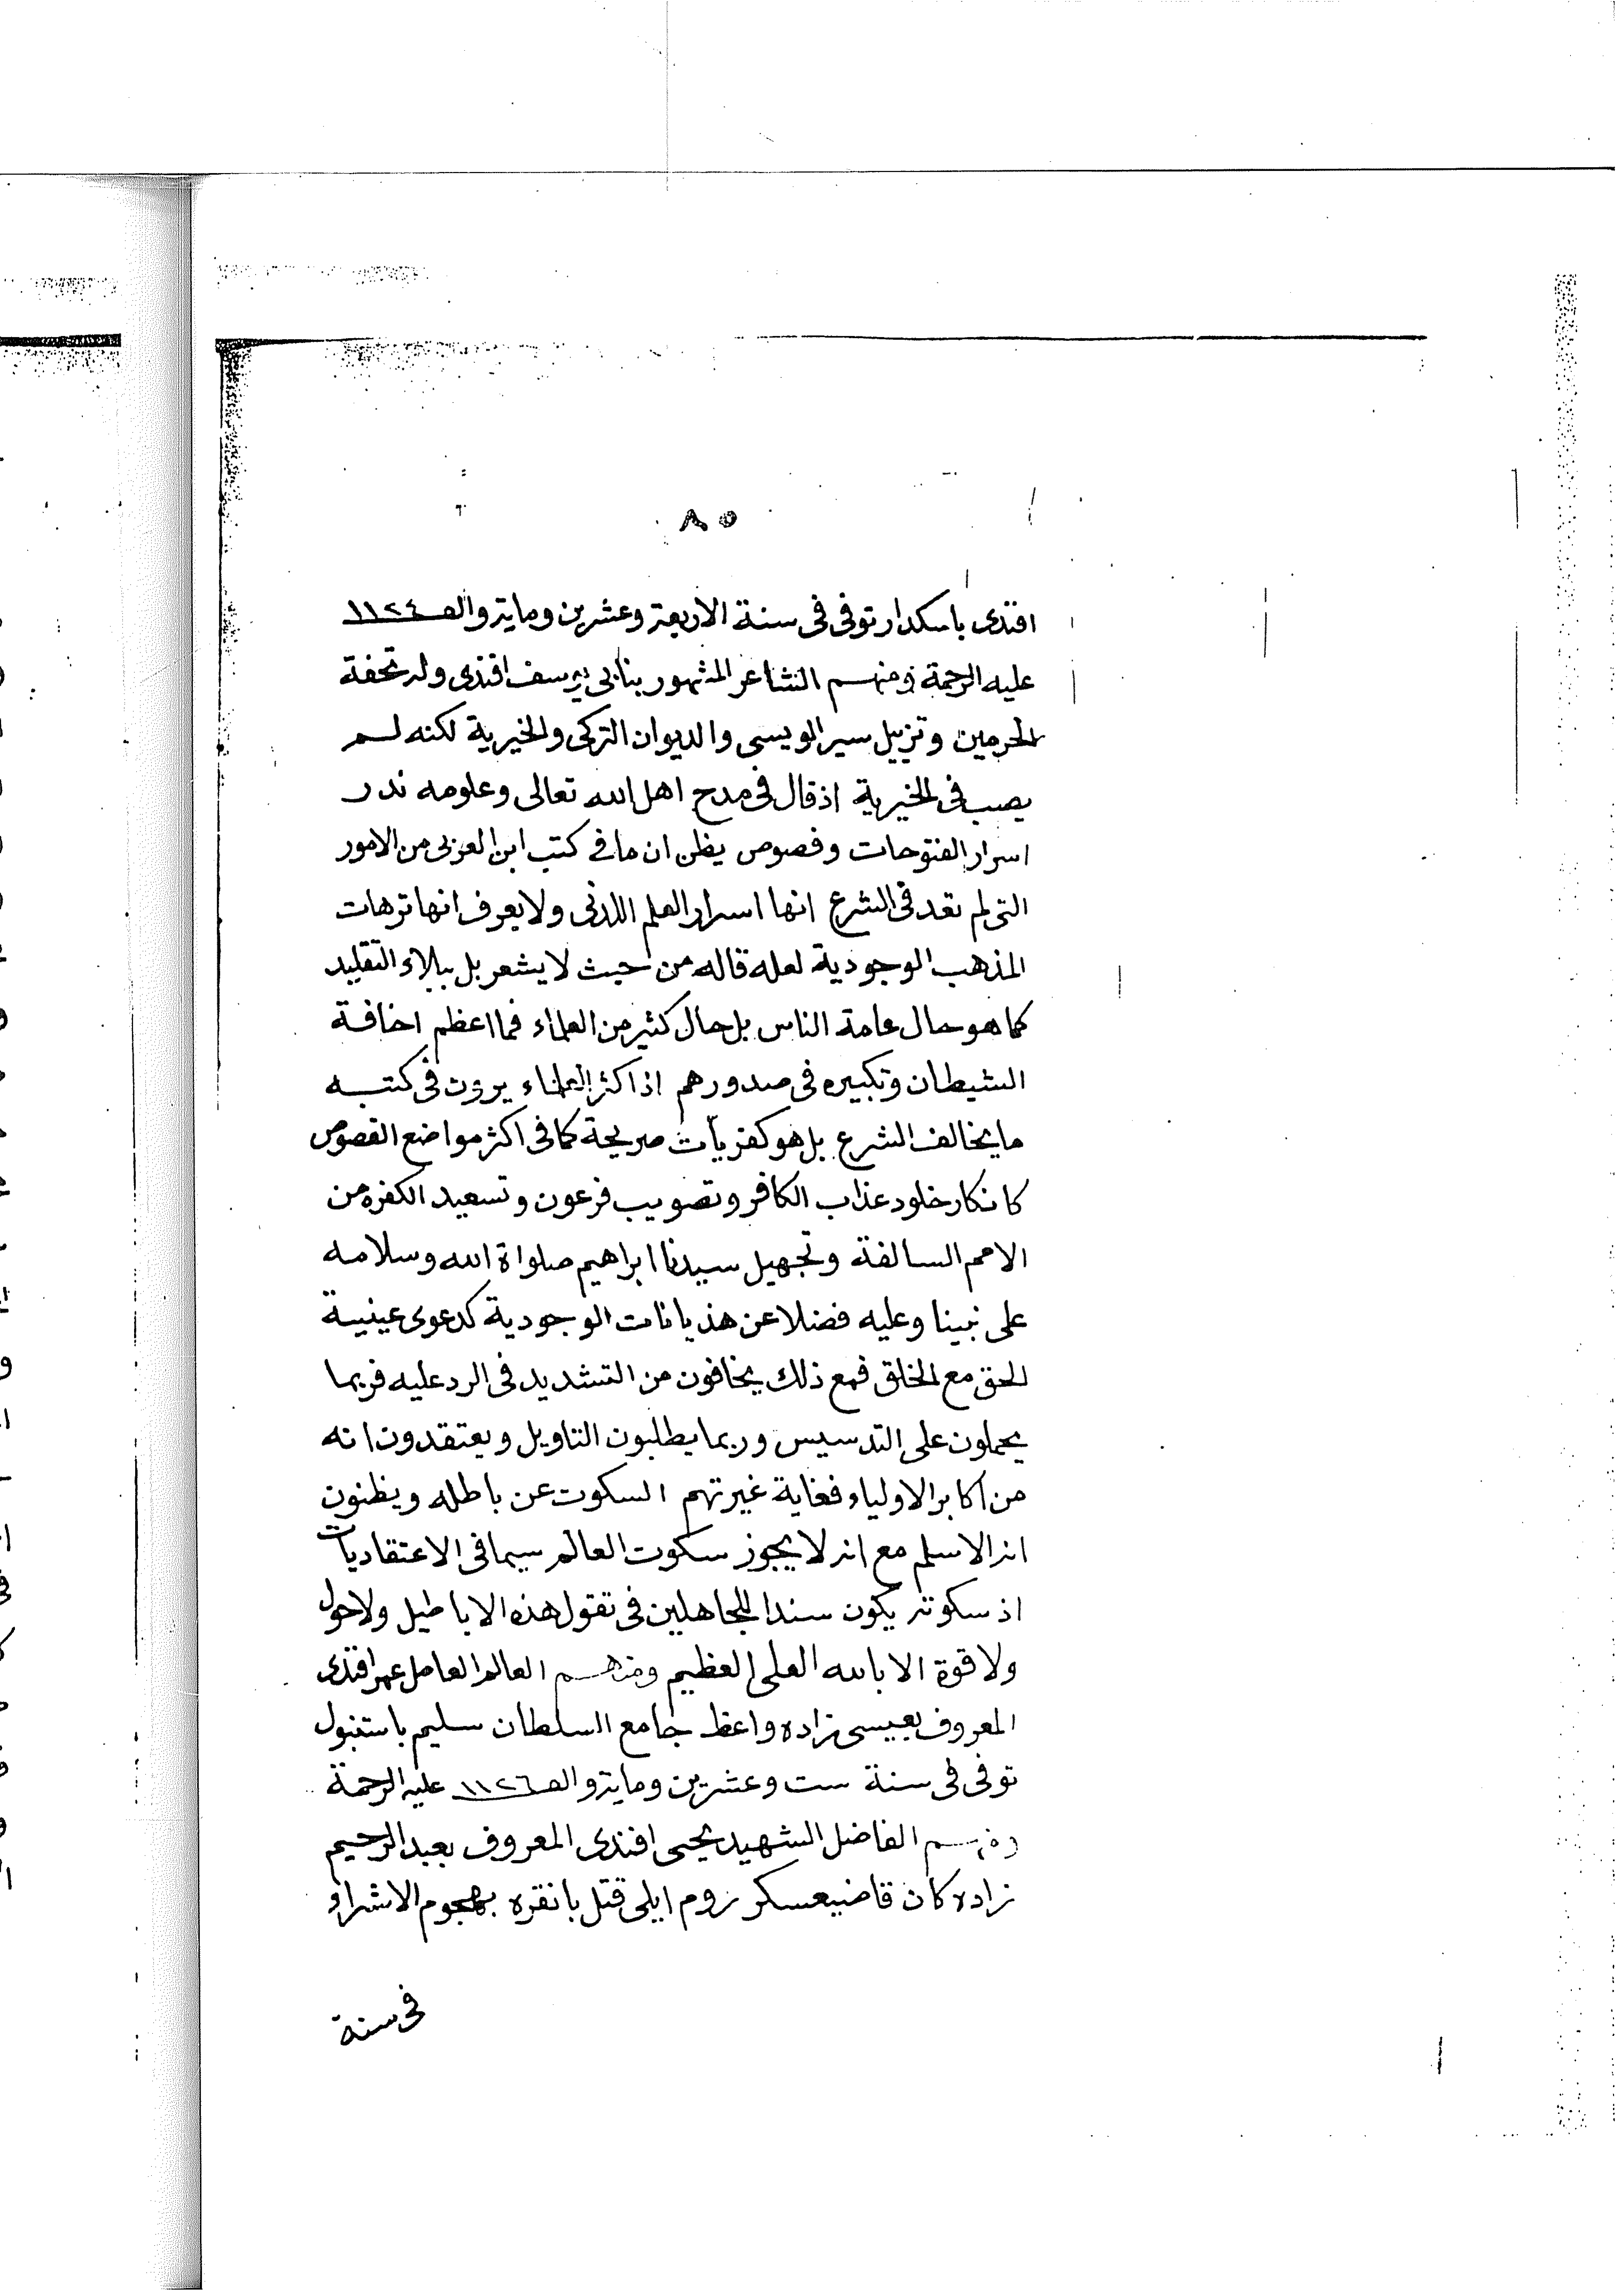 ٨٥
افندى باسكدار توفى فى سنة الاربعة وعشرين وماية والف ١١٢٤
عليه الرحمة ومنهم الشاعر المشهور بنابى يوسف افندى وله تحفة
الحرمين وتزييل سير الويسى والديوان التركى والخيرية لكنه لم
يصب فى الخيرية اذ قال فى مدح اهل الله تعالى وعلومه ندر
اسرار الفتوحات وفصوص يظن ان ما فى كتب ابن العربى من الامور
التى لم تعد فى الشرع انها اسرار العلم اللدنى ولا يعرف انها ترهات
المذهب الوجودية لعله قاله من حيث لا يشعر بل ببلاء التقليد
كما هو حال عامة الناس بل حال كثير من العلماء فما اعظم اخافة
الشيطان وتكبيره فى صدورهم اذ اكثر العلماء يرون فى كتبه
ما يخالف الشرع بل هو كفريات صريحة كما فى اكثر مواضع الفصوص
كانكار خلود عذاب الكافر وتصويب فرعون وتسعيد الكفره من
الامم السالفة وتجهيل سيدنا ابراهيم صلواة الله وسلامه
على نبينا وعليه فضلا عن هذيانات الوجودية كدعوى عينية
الحق مع الخلق فمع ذلك يخافون من التشديد فى الرد عليه فربما
يحملون على التدسيس وربما يطلبون التاويل ويعتقدون انه
من اكابر الاولياء فغاية غيرتهم السكوت عن باطله ويظنون
انه الاسلم مع انه لا يجوز سكوت العالم سيما فى الاعتقاديات
اذ سكوته يكون سندا للجاهلين فى تقول هذه الاباطيل ولا حول
ولا قوة الا بالله العلى العظيم ومنهم العالم العامل عمر افندى
المعروف بعيسى زاده واعظ جامع السلطان سليم باستنبول
توفى فى سنة ست وعشرين وماية والف ١١٢٦ عليه الرحمة
ومنهم الفاضل الشهيد يحيى افندى المعروف بعبد الرحيم
زاده كان قاضيعسكر روم ايلى قتل بانقره بهجوم الاشرار
فى سنة